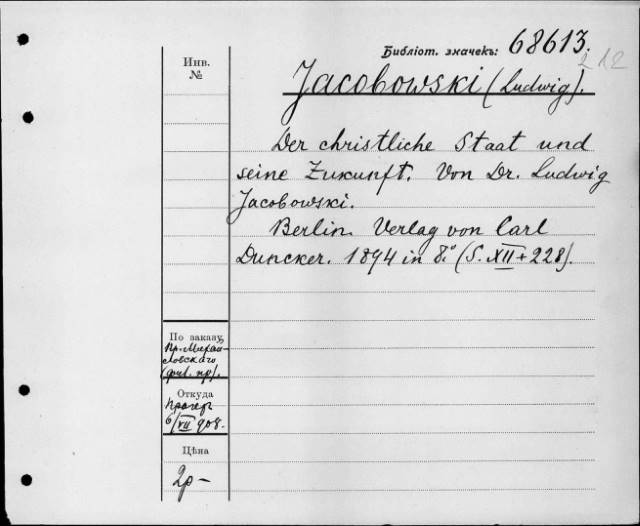 Библіот. значекъ: 68613.
212
Инв.
№
Jacobowski (Ludwig).
Der christliche Staat und
seine Zukunft. Von Dr. Ludwig
Jacobowski.
Berlin. Verlag von Carl
Duncker. 1894 in 8.º (S. XII + 228).
По заказу,
Пр. Михай-
ловскаго
Откуда
6/VII 908.
Цѣна
2р –